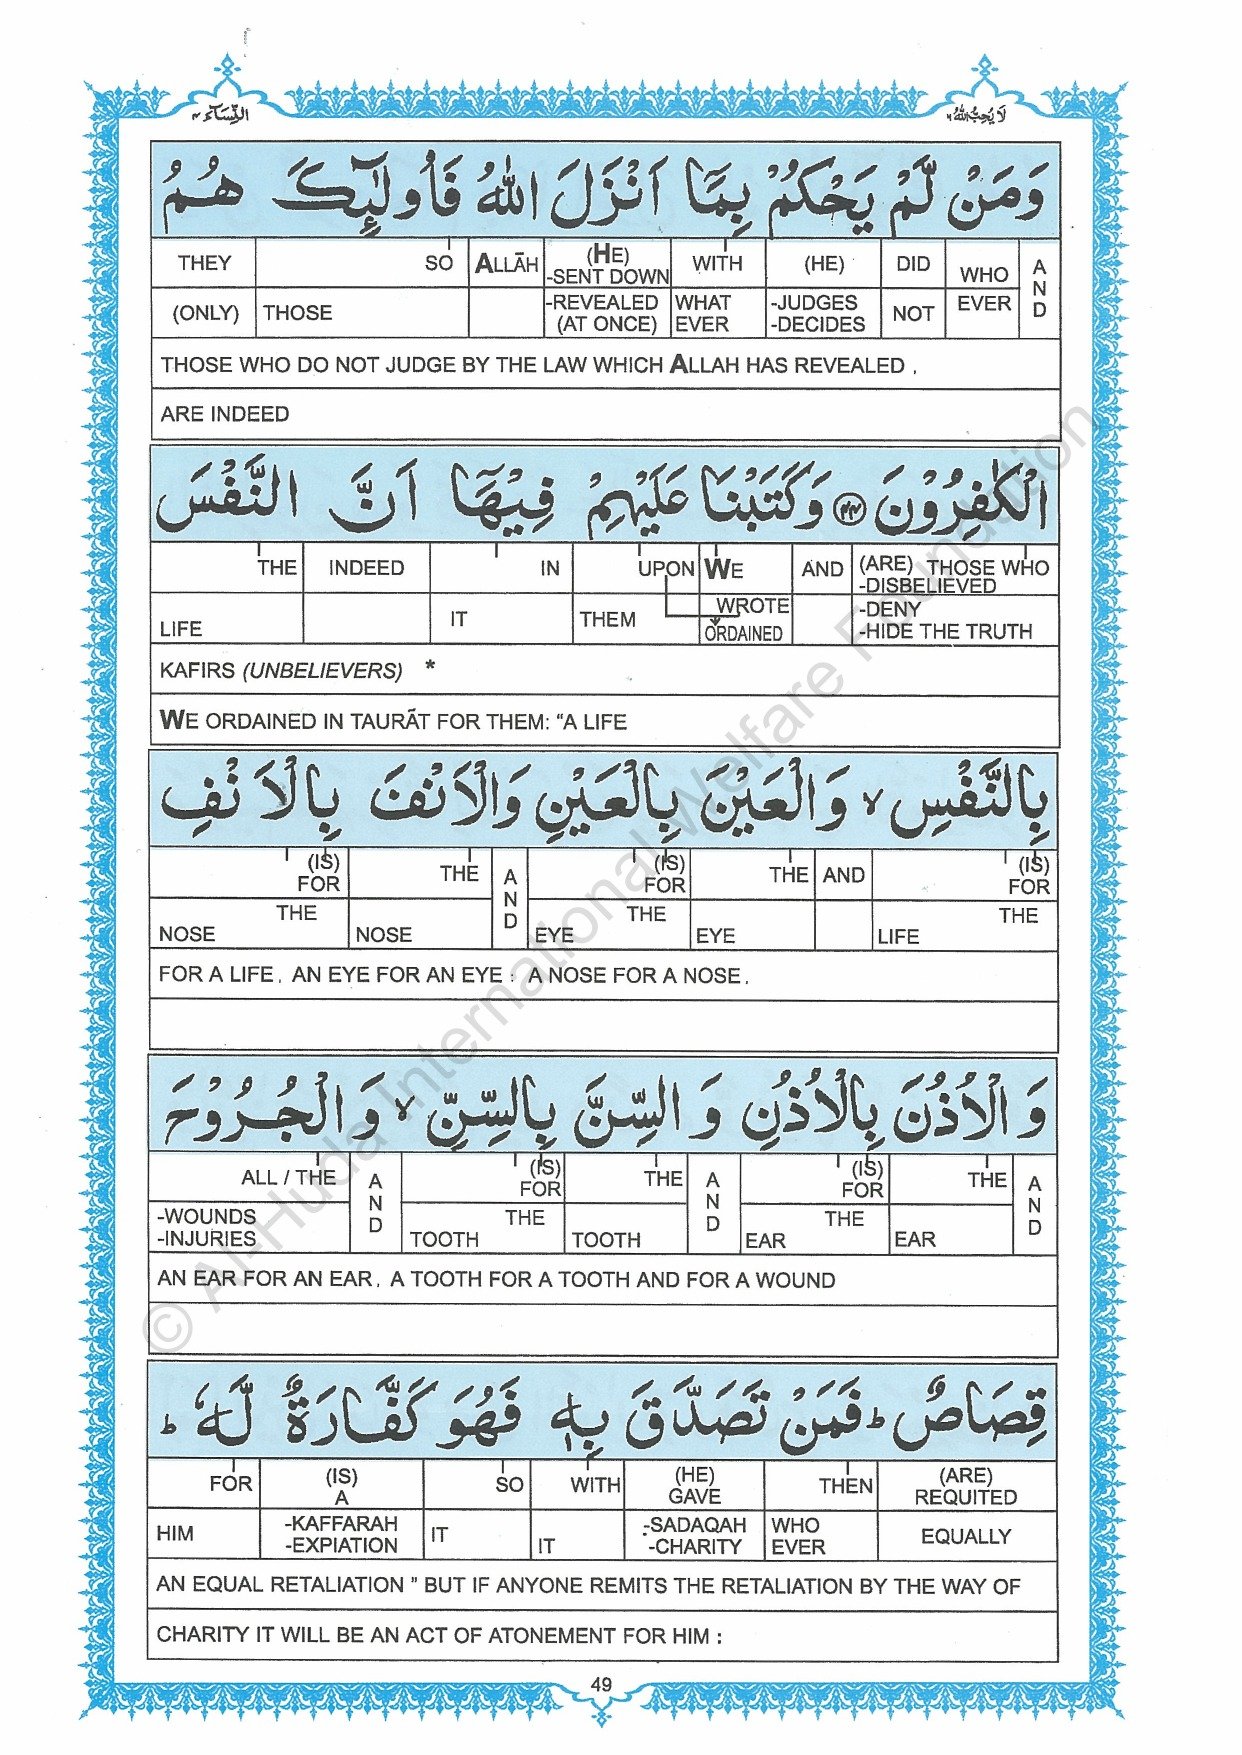 النِّسَآء ٤
لَا یُحِبُّ اللّٰهُ ٦
وَمَنْ لَّمْ یَحْكُمْ بِمَآ اَنْزَلَ اللّٰهُ فَاُولٰٓئِكَ هُمُ
THEY SO ALLĀH (HE) -SENT DOWN WITH (HE) DID WHO A N D
(ONLY) THOSE -REVEALED (AT ONCE) WHAT EVER -JUDGES -DECIDES NOT EVER
THOSE WHO DO NOT JUDGE BY THE LAW WHICH ALLAH HAS REVEALED ,
ARE INDEED
الْكٰفِرُوْنَ ۴۴ وَكَتَبْنَا عَلَیْهِمْ فِیْهَآ اَنَّ النَّفْسَ
THE INDEED IN UPON WE AND (ARE) THOSE WHO -DISBELIEVED
LIFE IT THEM WROTE ORDAINED -DENY -HIDE THE TRUTH
KAFIRS (UNBELIEVERS) *
WE ORDAINED IN TAURĀT FOR THEM: “A LIFE
بِالنَّفْسِ ۙ وَالْعَیْنَ بِالْعَیْنِ وَالْاَنْفَ بِالْاَنْفِ
(IS) FOR THE A N D (IS) FOR THE AND (IS) FOR
THE NOSE NOSE THE EYE EYE THE LIFE
FOR A LIFE , AN EYE FOR AN EYE : A NOSE FOR A NOSE ,
وَالْاُذُنَ بِالْاُذُنِ وَالسِّنَّ بِالسِّنِّ ۙ وَالْجُرُوْحَ
ALL / THE A N D (IS) FOR THE A N D (IS) FOR THE A N D
-WOUNDS -INJURIES THE TOOTH TOOTH THE EAR EAR
AN EAR FOR AN EAR , A TOOTH FOR A TOOTH AND FOR A WOUND
قِصَاصٌ ؕ فَمَنْ تَصَدَّقَ بِهٖ فَهُوَ كَفَّارَةٌ لَّهٗ ؕ
FOR (IS) A SO WITH (HE) GAVE THEN (ARE) REQUITED
HIM -KAFFARAH -EXPIATION IT IT -SADAQAH -CHARITY WHO EVER EQUALLY
AN EQUAL RETALIATION ” BUT IF ANYONE REMITS THE RETALIATION BY THE WAY OF
CHARITY IT WILL BE AN ACT OF ATONEMENT FOR HIM :
49
© Al-Huda International Welfare Foundation